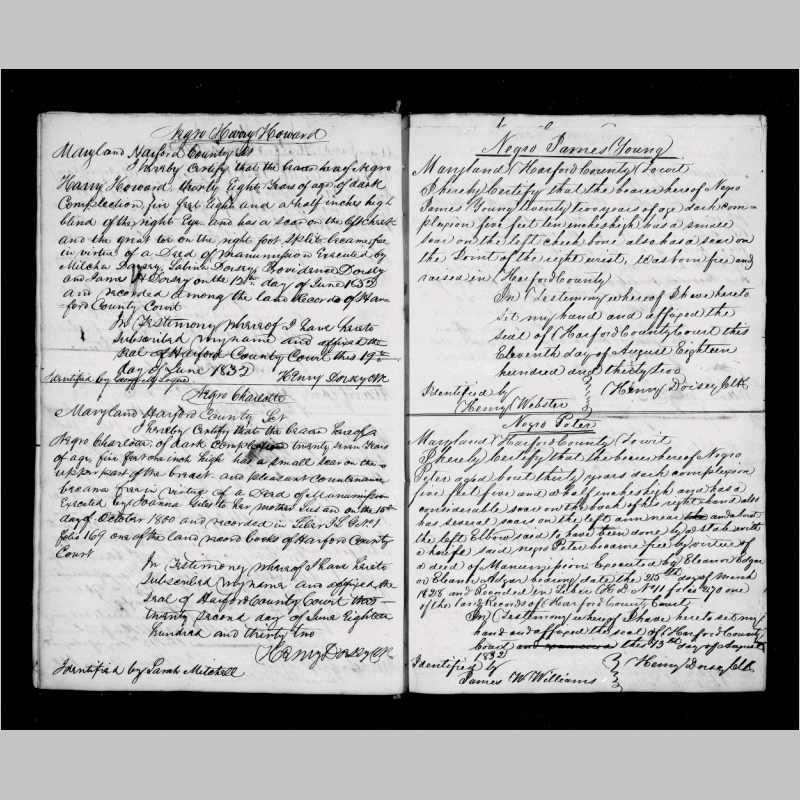 Negro Harry Howard
Maryland Harford County Sct
I hereby Certify that the bearer hereof Negro
Harry Howard thirty Eight Years of age, of dark
Complection, five feet Eight and a half inches high
blind of the right Eye and has a scar on the left cheek
and the great toe on the right foot split became free
in virtue of a Deed of Manumission Executed by
Dorsey, Dorsey, Providence Dorsey
and H Dorsey on the 12th day of June 1832
and recorded among the land Records of Har
ford County Court
In Testimony whereof I have hereto
Subscribed my name and affixed the
seal of Harford County Court this 19th
day of June 1832
Henry Dorsey Clk
Identified by
Negro Charlotte
Maryland Harford County Sct
I hereby Certify that the bearer hereof
Negro Charlotte, of dark Complection twenty seven Years
of age, five feet one inch high has a small scar on the
upper part of the breast and pleasant Countenance
became free in virtue of a Deed of Manumission
Executed by Joanna Giles to her mother and on the
day of October 1800 and recorded in Liber J L G No 1
folio 169 one of the land record books of Harford County
Court
In Testimony whereof I have hereto
Subscribed my name and affixed the
seal of Harford County Court this
twenty second day of June Eighteen
hundred and thirty two
Henry Dorsey Clk
Identified by Sarah Mitchell
Negro James Young
Maryland Harford County To wit
I hereby Certify that the bearer hereof Negro
James Young twenty two years of age dark com-
plexion five feet ten inches high has a small
scar on the left cheek bone also has a scar on
the Joint of the right wrist, was born free and
raised in Harford County
In Testimony whereof I have hereto
set my hand and affixed the
seal of Harford County Court this
Eleventh day of August Eighteen
hundred and thirty two
Henry Dorsey Clk
Identified by
Henry Webster
Negro Peter
Maryland Harford County To wit
I hereby Certify that the bearer hereof Negro
Peter aged bout thirty years dark complexion
five feet five and a half inches high and has a
considerable scar on the back of his right hand also
has several scars on the left arm near the and about
the left Elbow said to have been done by a stab with
a knife said negro Peter became free by virtue of
a deed of Manumission Executed by Eleanor Edgar
or Eleanor bearing date the 25th day of March
1828 and Recorded in Liber H D No 11 folio 270 one
of the land Records of Harford County Court
In Testimony whereof I have hereto set my
hand and affixed the seal of Harford County
this 13th day of August
1832
Henry Dorsey Clk
Identified by
James W Williams